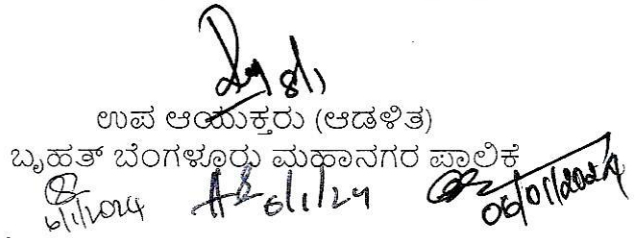 8/1
ಉಪ ಆಯುಕ್ತರು (ಆಡಳಿತ)
ಬೃಹತ್ ಬೆಂಗಳೂರು ಮಹಾನಗರ ಪಾಲಿಕೆ
6/1/2024 6/1/24 06/01/2024